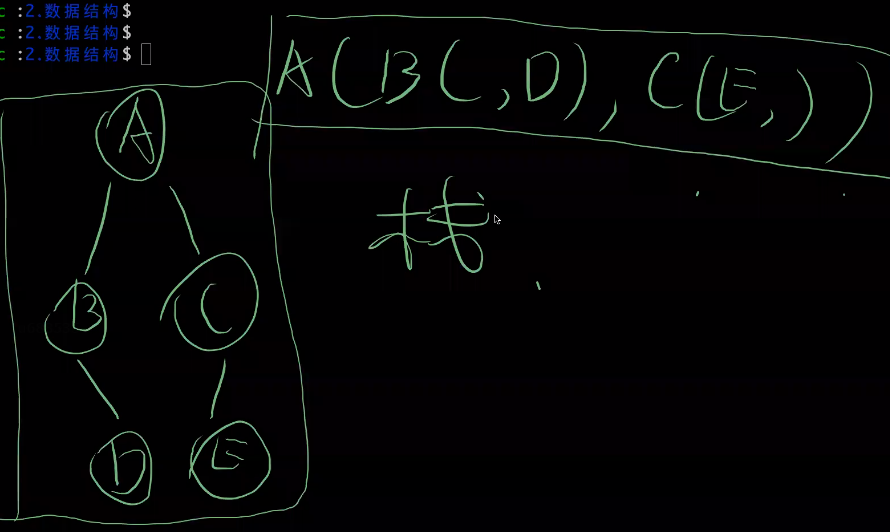 c :2.数据结构$
c :2.数据结构$
c :2.数据结构$
A(B(,D),C(E,))
A
栈
B C
D E